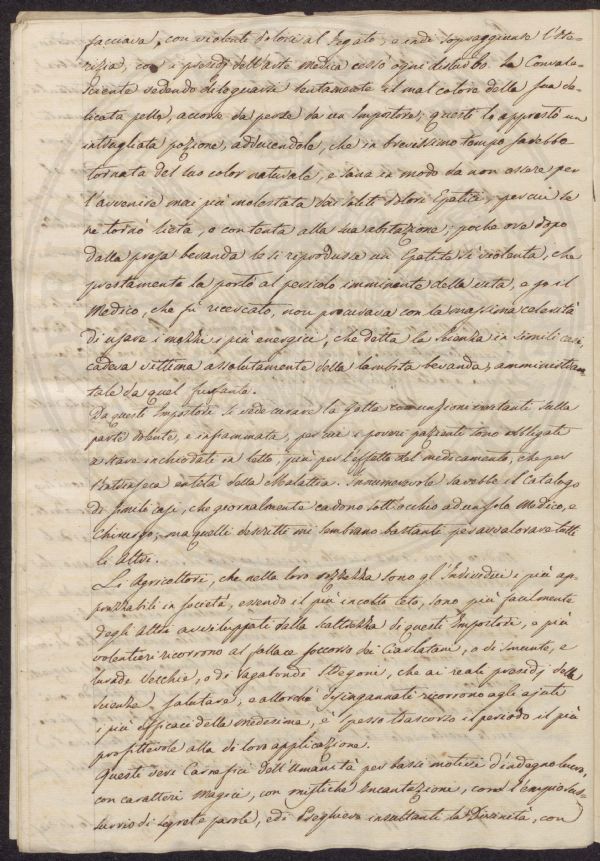 facciava, con violenti dolori al fegato, e indi sopraggiunse l'Ite-
rizia, con i presidj dell'arte Medica cessò ogni disturbo. La Convale-
sciente vedendo dileguarsi lentamente il mal colore della sua de-
licata pelle, accorse da per se da un Impostore; questi le apprestò un
intrugliata pozione, adducendole, che in brevissimo tempo sarebbe
tornata del suo color naturale, e sana in modo da non essere per
l'avvenire mai più molestata dai soliti dolori Epatici, perciò se
ne tornò lieta, e contenta alla sua abitazione; poche ore dopo
dalla presa bevanda le si riprodusse un Epatite sì violenta, che
prestamente la portò al pericolo imminente della vita, e se il
Medico, che fù ricercato, non procurava con la massima celerità
di usare i mezzi i più energici, che detta la scienza in simili casi,
cadeva vittima assolutamente della bevanda, amministra-
tale da quel furfante.
Da questi Impostori si vede curare la Gotta con unzioni irritanti sulla
parte dolente, e infiammata, per cui i poveri pazienti sono obbligati
a stare inchiodati in letto, più per l'effetto del medicamento, che per
l'intrinseca entità della Malattia. Innumerevole sarebbe il Catalogo
di simili casi, che giornalmente cadono sott'occhio ad un solo Medico, e
Chirurgo, ma quelli descritti mi sembrano bastanti per avvalorare tutti
li Altri.
Li Agricoltori, che nella loro rozzezza sono gl'Individui i più ap-
prezzabili in società, essendo il più incolto ceto, sono più facilmente
degli Altri avviluppati dalla scaltrezza di questi Impostori, e più
volentieri ricorrono al fallace soccorso dei Ciarlatani, o di smunte, e
luride Vecchie, o di vagabondi Stregoni, che ai reali presidj della
scienza salutare, e allorchè disingannati ricorrono agli ajuti
i più efficaci della medesima, è spesso trascorso il periodo il più
profittevole alla di loro applicazione.
Questi veri Carnefici dell'Umanità per bassi motivi d'indegno lucro,
con caratteri Magici, con mistiche Incantazione, con l'empio sus-
surrio di segrete parole, e di Preghiere insultanti la Divinità, con